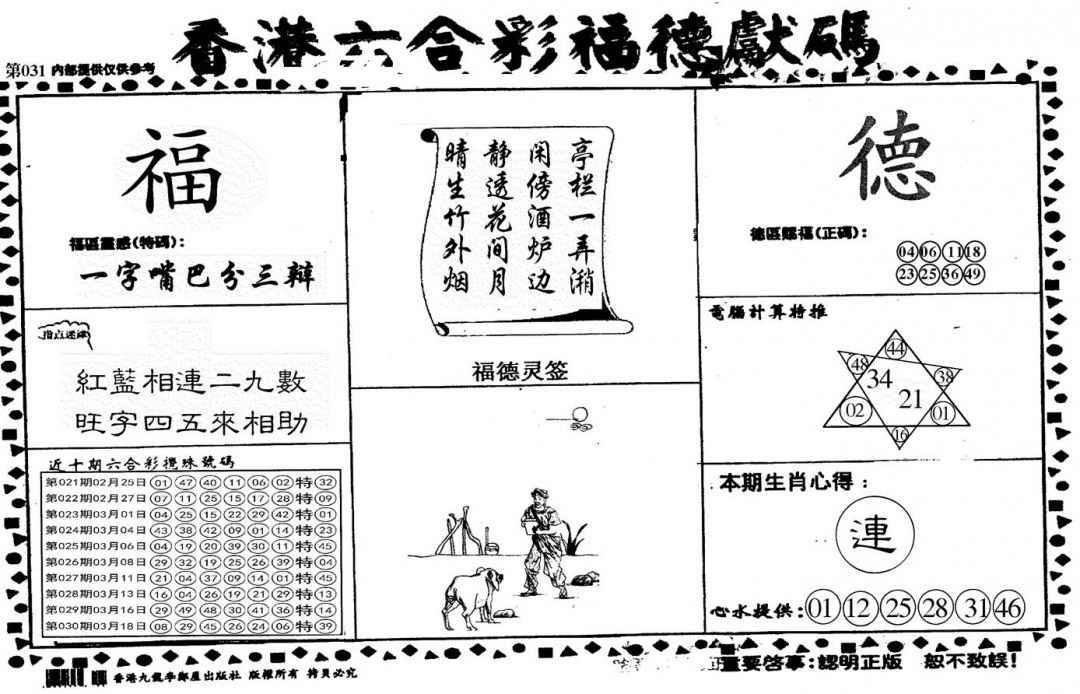 香港六合彩福德獻碼
第031 内部提供仅供参考
福
福區靈感(特碼):
一字嘴巴分三辩
指点迷津
紅藍相連二九數
旺字四五來相助
近十期六合彩攪珠號碼
第021期02月25日 01 47 40 11 06 02 特 32
第022期02月27日 07 11 25 15 17 28 特 09
第023期03月01日 04 25 15 22 29 42 特 01
第024期03月04日 43 38 42 09 01 14 特 23
第025期03月06日 04 19 20 39 30 11 特 45
第026期03月08日 29 32 19 25 26 39 特 04
第027期03月11日 21 04 37 09 14 01 特 45
第028期03月13日 16 04 26 19 21 29 特 13
第029期03月16日 29 49 48 30 41 36 特 14
第030期03月18日 08 29 45 26 24 06 特 39
亭栏一弄潲
闲傍酒炉边
静透花间月
晴生竹外烟
福德灵签
德
德區賜福(正碼):
04 06 11 18
23 25 36 49
電腦計算特推
44
48 38
34 21
02 01
16
本期生肖心得:
連
心水提供: 01 12 25 28 31 46
香港九龍李鄭屋出版社 版權所有 拷貝必究
重要啓事:認明正版 恕不致誤!